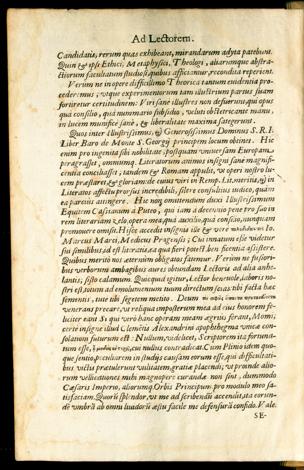 Ad Lectorem.
Candidatis, rerum quas exhibeant, mirandarum adyta patebunt.
Quin & ipse Ethici, Metaphysici, Theologi, aliarumque abstra-
ctiorum facultatum studiosi, quibus afficiantur, recondita reperient.
Verùm ne in opere difficillimo Theorica tantum evidentia pro-
cederemus; utque experimentorum tam illustrium parius suam
fortiretur certitudinem: Viri sanè illustres non defuerunt, qui opus
quà consilio, quà nummario subsidio, velut obstetricante manu,
in lucem munificè sanè, & liberalitate maxima satagerent.
Quos inter illustrissimus, & Generosissimus Dominus S. R. I.
Liber Baro de Monte S. Georgij principem locum obtinet. Hic
enim pro ingenita sibi nobilitate, postquam universam Europam
peragrasset, omnium Literatorum animos insigni sanè magnifi-
centia conciliasset, tandem & Romam appulit, ut operi nostro lu-
cem præstaret, & gloriam de cunis viri in Remp. Literariam, & in
Literatos affectu prorsus incredibili, solere consulibus iudicio, quàm
ea pariuis attingere. Hic non omittendum duxi Illustrissimum
Equitem Cassianum à Puteo, qui iam à decennio penè pro sua in
rem literariam zelo, opera mea quà auxilio, quà consilio, nunquam
promovere omisit. Hisce accedit insignis ille & verè
Marcus Marci, Medicus Pragensis; Cui innatum esse videtur
sui similibus, id est literatis, ea qua fieri potest benevolentia assistere.
Quibus meritò nos æternùm obligatos fatemur. Verùm ne fusiori-
bus verborum ambagibus aures obtundam Lectoris ad alia anhe-
lantis; sisto calamum. Quicquid igitur, Lector benevole, laboris no-
stri est, totum ad emolumentum tuum directum scias, tibi facta hæc
sementis, tute tibi segetem metito. Deum
venerans precare, ut reliqua impositorum mea ad eius honorem fe-
liciter eant. Si qui verò hanc operam meam ægriùs ferant, Momi;
certè insigne illud Clementis Alexandrini apophthegma unicæ con-
solationi futurum est: Nullum, videlicet, Scriptorem ita fortuna-
tum esse, cui nullus contradicat. Cum Plinio idem quo-
que sentio, peculiarem in studijs causam eorum esse, qui difficultati-
bus victis prætulerunt utilitatem gratiæ placendi; ut proinde alio-
rum vellicationes mihi magnopere curandæ non sint, dummodo
Cæsaris Imperio, aliorumque Orbis Principum pro modulo meo sa-
tisfaciam. Quorum splendor, ut me ad scribendum accendit, ita eorun-
dè umbra ab omni livido æstu facilè me defensurum confido. Vale.
SE-